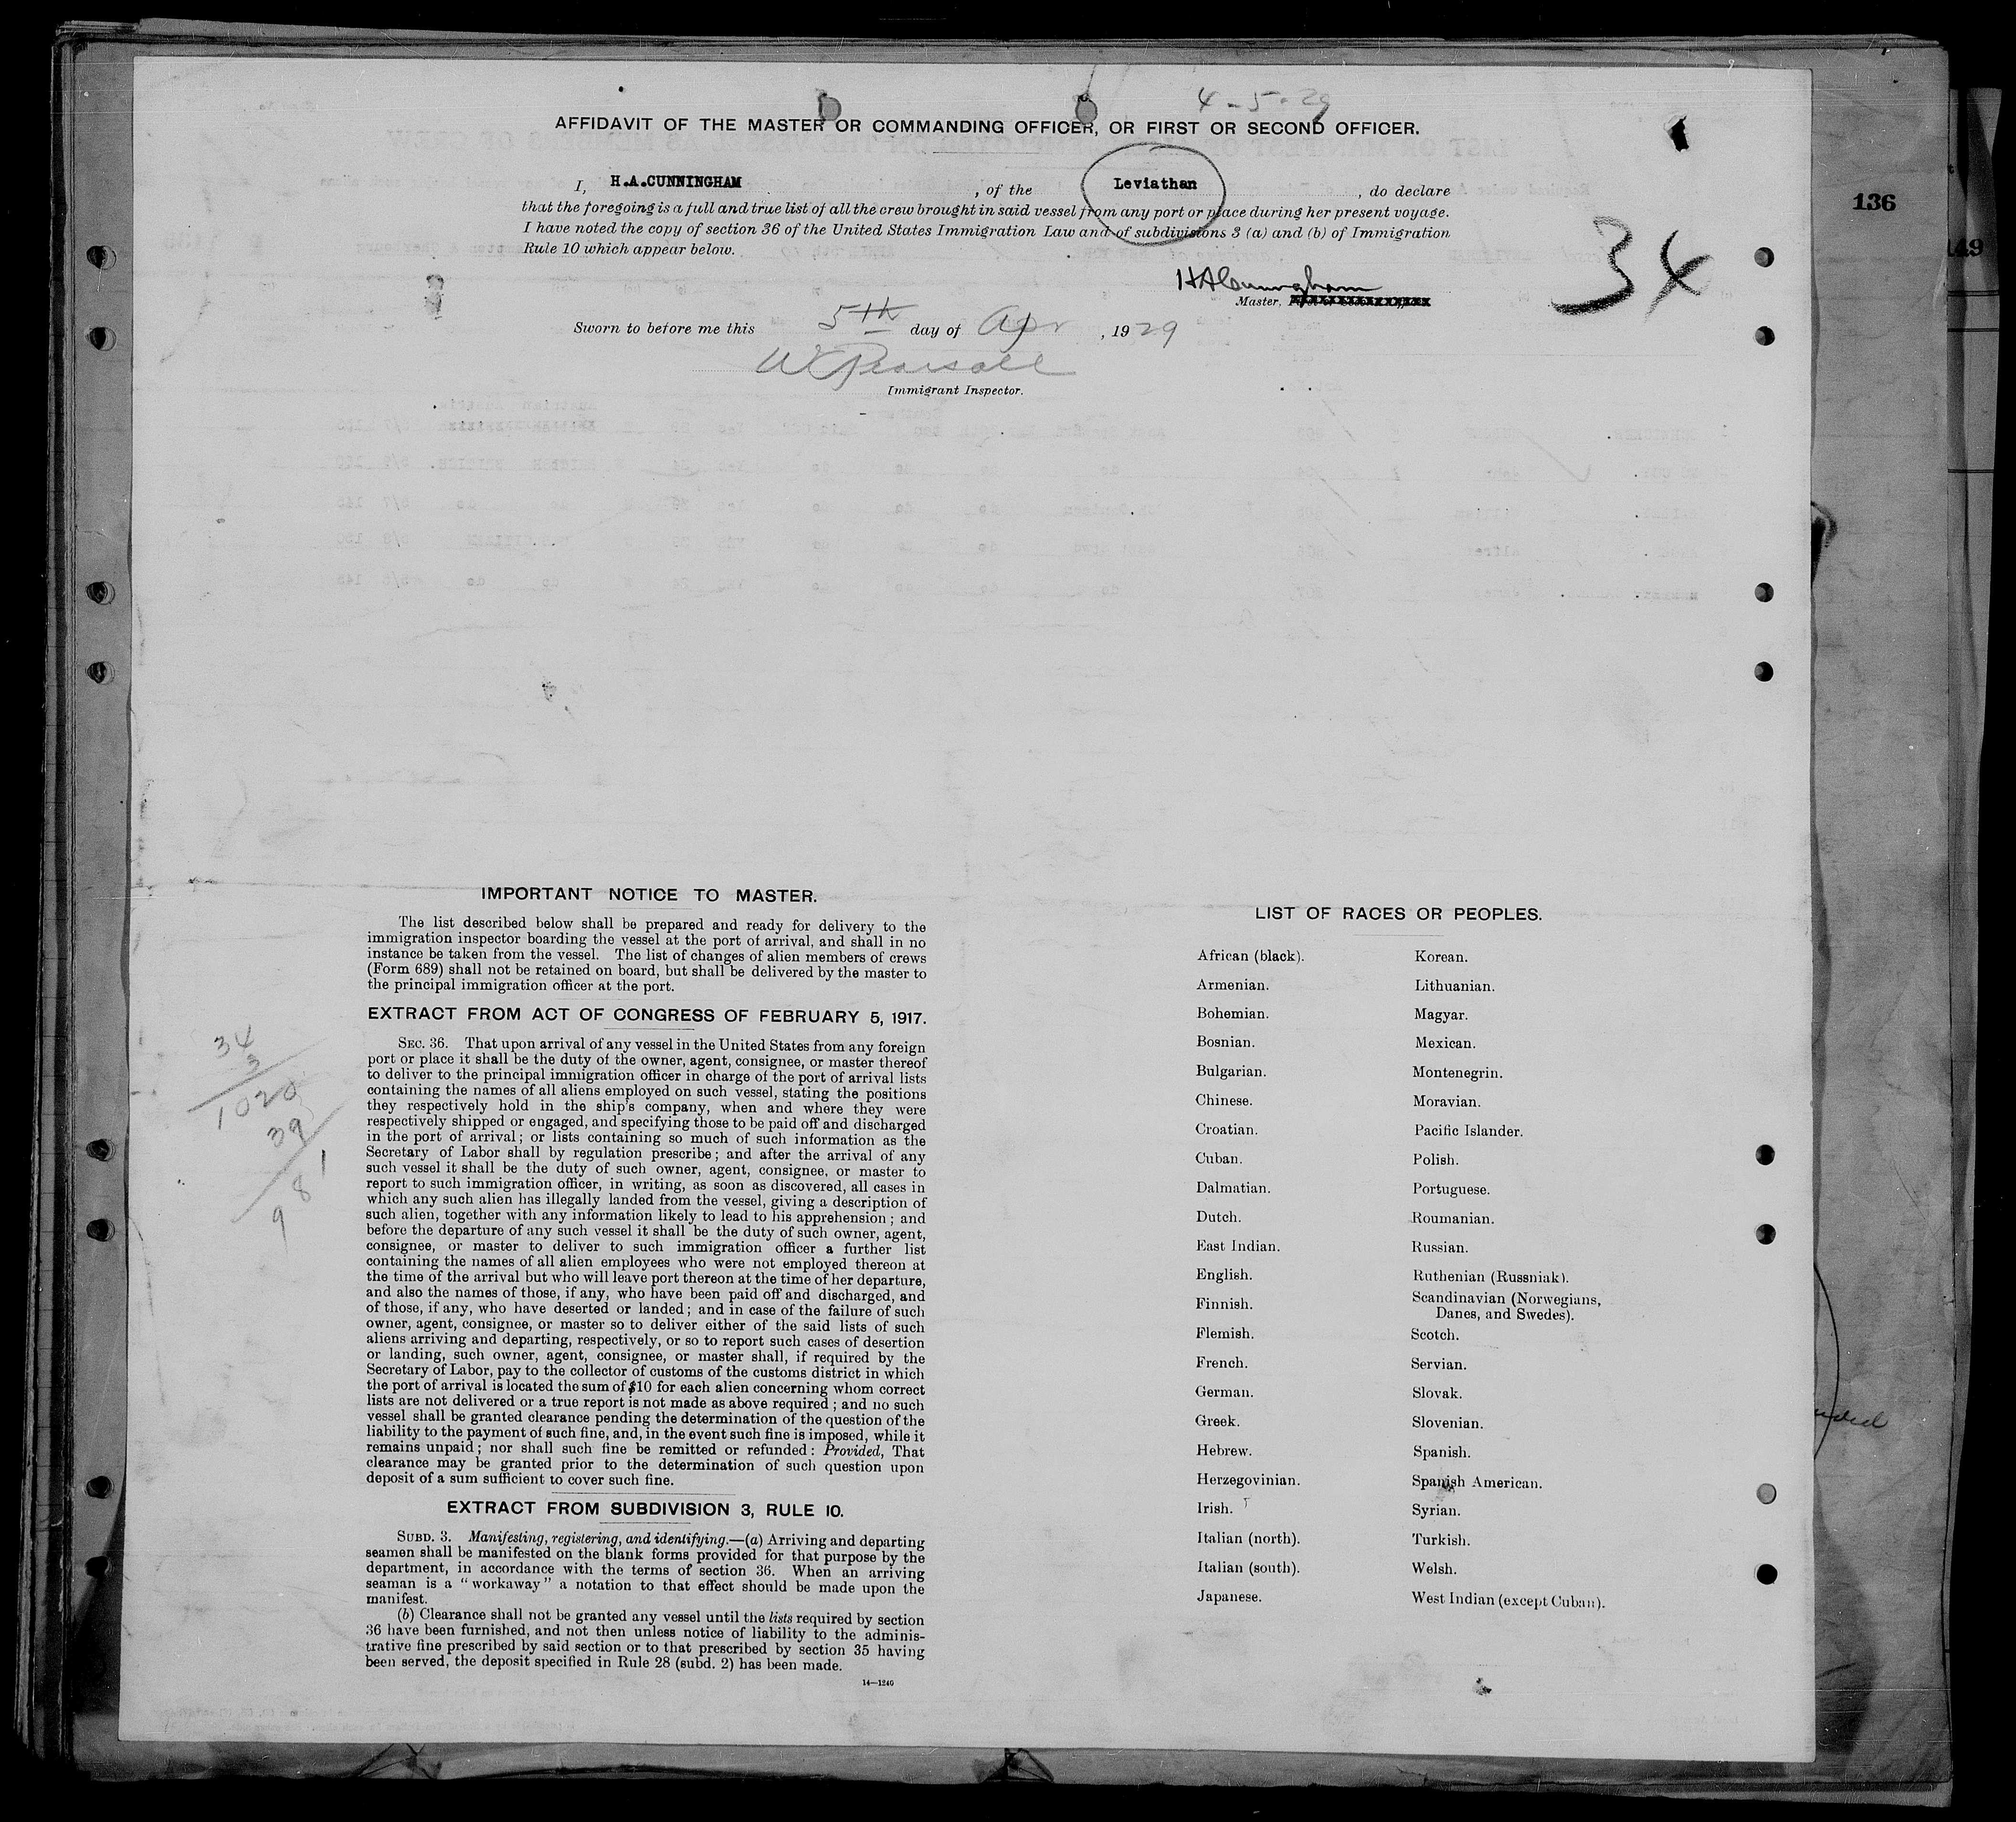 4-5-29
AFFIDAVIT OF THE MASTER OR COMMANDING OFFICER, OR FIRST OR SECOND OFFICER.
I, H.A.CUNNINGHAM, of the Leviathan, do declare
that the foregoing is a full and true list of all the crew brought in said vessel from any port or place during her present voyage.
I have noted the copy of section 36 of the United States Immigration Law and of subdivisions 3 (a) and (b) of Immigration
Rule 10 which appear below.
136
149
34
HACunningham
Master,
Sworn to before me this 5th day of Apr, 1929
W Pearsall
Immigrant Inspector.
IMPORTANT NOTICE TO MASTER.
The list described below shall be prepared and ready for delivery to the
immigration inspector boarding the vessel at the port of arrival, and shall in no
instance be taken from the vessel. The list of changes of alien members of crews
(Form 689) shall not be retained on board, but shall be delivered by the master to
the principal immigration officer at the port.
EXTRACT FROM ACT OF CONGRESS OF FEBRUARY 5, 1917.
SEC. 36. That upon arrival of any vessel in the United States from any foreign
port or place it shall be the duty of the owner, agent, consignee, or master thereof
to deliver to the principal immigration officer in charge of the port of arrival lists
containing the names of all aliens employed on such vessel, stating the positions
they respectively hold in the ship's company, when and where they were
respectively shipped or engaged, and specifying those to be paid off and discharged
in the port of arrival; or lists containing so much of such information as the
Secretary of Labor shall by regulation prescribe; and after the arrival of any
such vessel it shall be the duty of such owner, agent, consignee, or master to
report to such immigration officer, in writing, as soon as discovered, all cases in
which any such alien has illegally landed from the vessel, giving a description of
such alien, together with any information likely to lead to his apprehension; and
before the departure of any such vessel it shall be the duty of such owner, agent,
consignee, or master to deliver to such immigration officer a further list
containing the names of all alien employees who were not employed thereon at
the time of the arrival but who will leave port thereon at the time of her departure,
and also the names of those, if any, who have been paid off and discharged, and
of those, if any, who have deserted or landed; and in case of the failure of such
owner, agent, consignee, or master so to deliver either of the said lists of such
aliens arriving and departing, respectively, or so to report such cases of desertion
or landing, such owner, agent, consignee, or master shall, if required by the
Secretary of Labor, pay to the collector of customs of the customs district in which
the port of arrival is located the sum of $10 for each alien concerning whom correct
lists are not delivered or a true report is not made as above required; and no such
vessel shall be granted clearance pending the determination of the question of the
liability to the payment of such fine, and, in the event such fine is imposed, while it
remains unpaid; nor shall such fine be remitted or refunded: Provided, That
clearance may be granted prior to the determination of such question upon
deposit of a sum sufficient to cover such fine.
EXTRACT FROM SUBDIVISION 3, RULE 10.
SUBD. 3. Manifesting, registering, and identifying.—(a) Arriving and departing
seamen shall be manifested on the blank forms provided for that purpose by the
department, in accordance with the terms of section 36. When an arriving
seaman is a "workaway" a notation to that effect should be made upon the
manifest.
(b) Clearance shall not be granted any vessel until the lists required by section
36 have been furnished, and not then unless notice of liability to the adminis-
trative fine prescribed by said section or to that prescribed by section 35 having
been served, the deposit specified in Rule 28 (subd. 2) has been made.
14—1240
34
3
1020
39
981
LIST OF RACES OR PEOPLES.
African (black).
Armenian.
Bohemian.
Bosnian.
Bulgarian.
Chinese.
Croatian.
Cuban.
Dalmatian.
Dutch.
East Indian.
English.
Finnish.
Flemish.
French.
German.
Greek.
Hebrew.
Herzegovinian.
Irish.
Italian (north).
Italian (south).
Japanese.
Korean.
Lithuanian.
Magyar.
Mexican.
Montenegrin.
Moravian.
Pacific Islander.
Polish.
Portuguese.
Roumanian.
Russian.
Ruthenian (Russniak).
Scandinavian (Norwegians,
Danes, and Swedes).
Scotch.
Servian.
Slovak.
Slovenian.
Spanish.
Spanish American.
Syrian.
Turkish.
Welsh.
West Indian (except Cuban).